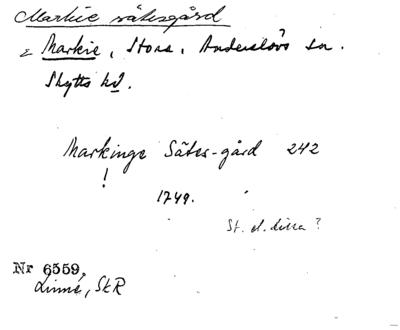 Markie sätesgård
Markie, Stora, Anderslövs sn.
Skytts hd.
Markinge Sätes-gård 242
!
1749.
St. el. lilla?
Nr 6559.
Linné, SkR